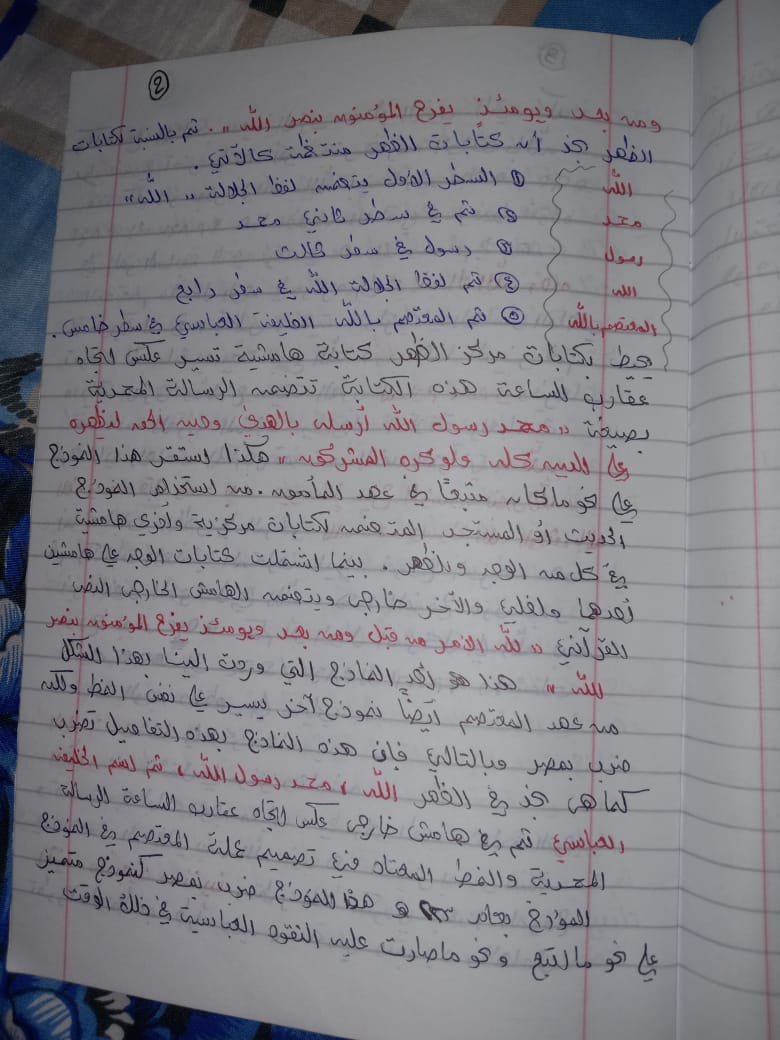 2
ومن بعد ويومئذ يفرح المؤمنون بنصر الله". ثم بالنسبة لكتابات
الظهر نجد أن كتابات الظهر منتظمة كالآتي.
الله ① السطر الأول يتضمن لفظ الجلالة "الله"
محمد ② ثم في سطر ثاني محمد
رسول ③ رسول في سطر ثالث
الله ④ ثم لفظ الجلالة الله في سطر رابع
المعتصم بالله ⑤ ثم المعتصم بالله الخليفة العباسي في سطر خامس.
يحيط بكتابات مركز الظهر كتابة هامشية تسير عكس اتجاه
عقارب الساعة هذه الكتابة تتضمن الرسالة المحمدية
بصيغة "محمد رسول الله أرسله بالهدى ودين الحق ليظهره
على الدين كله ولو كره المشركون" هكذا استقر هذا النموذج
على نحو ما كان متبعًا في عهد المأمون. من استخدام النموذج
الحديث أو المستجد المتضمن لكتابات مركزية وأخرى هامشية
في كل من الوجه والظهر. بينما اشتملت كتابات الوجه على هامشين
أحدهما داخلي والآخر خارجي ويتضمن الهامش الخارجي النص
القرآني "لله الأمر من قبل ومن بعد ويومئذ يفرح المؤمنون بنصر
الله" هذا هو أحد النماذج التي وردت إلينا بهذا الشكل
من عهد المعتصم أيضاً نموذج آخر يسير على نفس النمط ولكنه
ضرب بمصر وبالتالي فإن هذه النماذج بهذه التفاصيل تضرب
كما هي نجد في الظهر الله، محمد رسول الله، ثم اسم الخليفة
العباسي ثم في هامش خارجي عكس اتجاه عقارب الساعة الرسالة
المحمدية والنمط المعتاد في تصميم عملة المعتصم في النموذج
النموذج هذا النموذج ضرب بمصر كنموذج متميز
على نحو ما اتبع ونحو ما صارت عليه النقود العباسية في ذلك الوقت